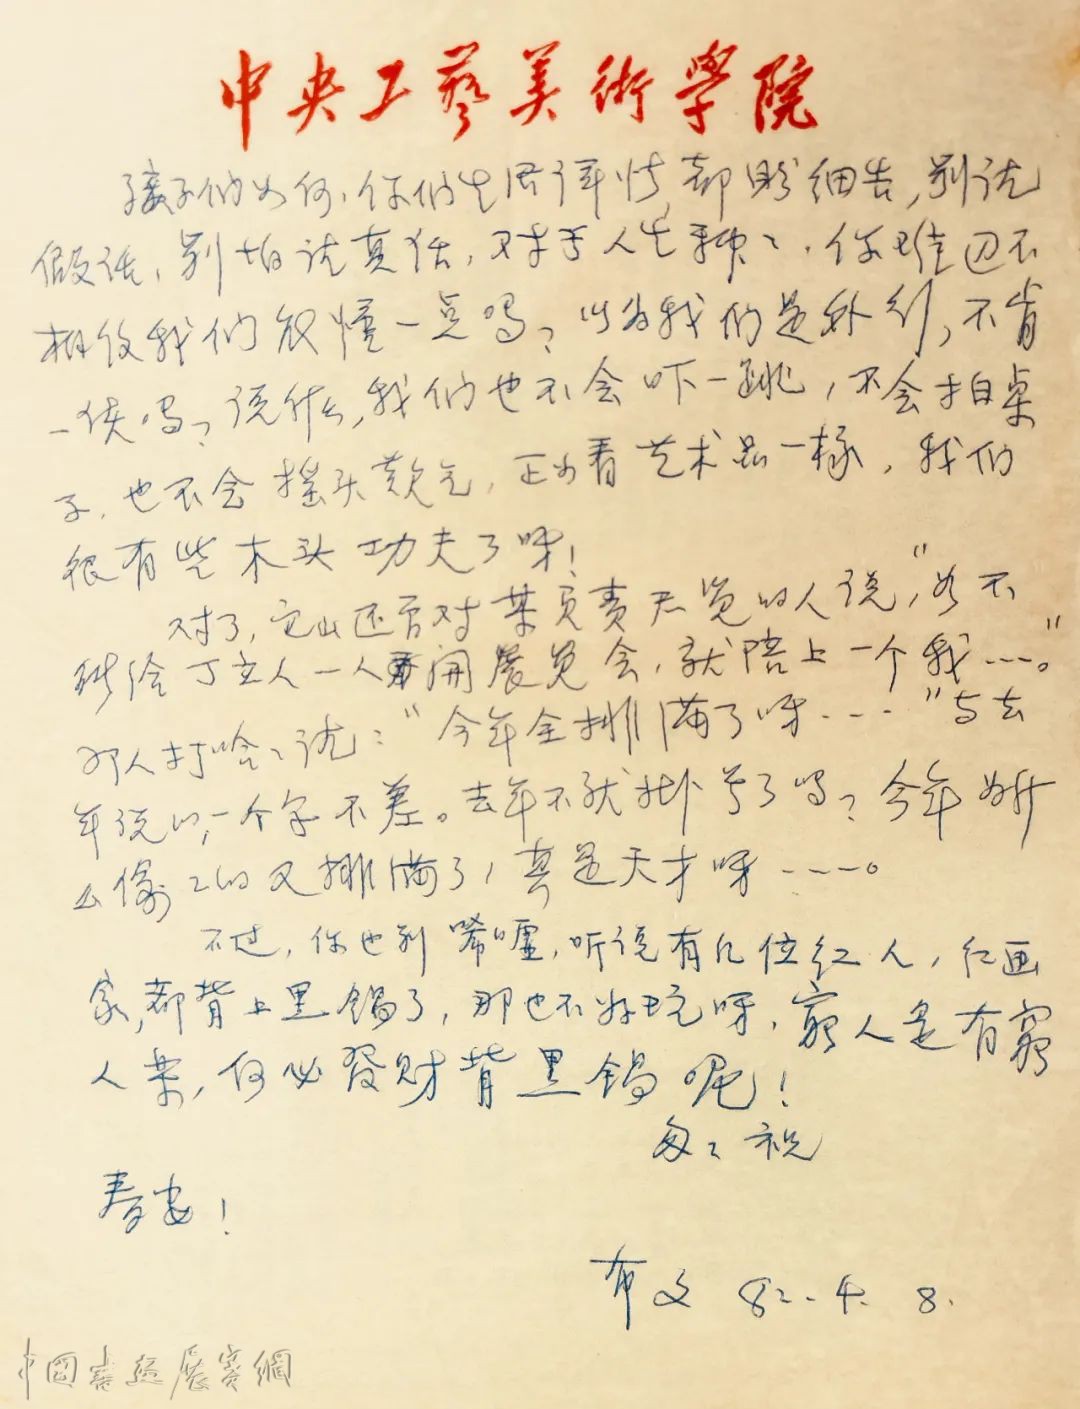 中央工藝美術學院
孩子们如何，你们生活详情，都盼细告，别说
假话，别怕说真话，对于人生种々，你难迈不
相信我们能懂一点吗？以为我们是外行，不肯
一谈吗？说什么，我们也不会吓一跳，不会拍桌
子，也不会摇头叹气，正如看艺术品一样，我们
很有些木头功夫了呀！
对了，它山还曾对某负责展览的人说，“如不
能给丁立人一人开展览会，就陪上一个我……。”
那人打哈々说：“今年全排满了呀……”与去
年说的，一个字不差。去年不就挂号了吗？今年如什
么偷々的又排满了，真是天才呀……。
不过，你也别唏嘘，听说有几位红人，红画
家，都背上黑锅了，那也不好玩呀，窮人是有窮
人乐，何必發财背黑锅呢！
匆々祝
春安！
布文 82.4.8.
中国書画展赛網